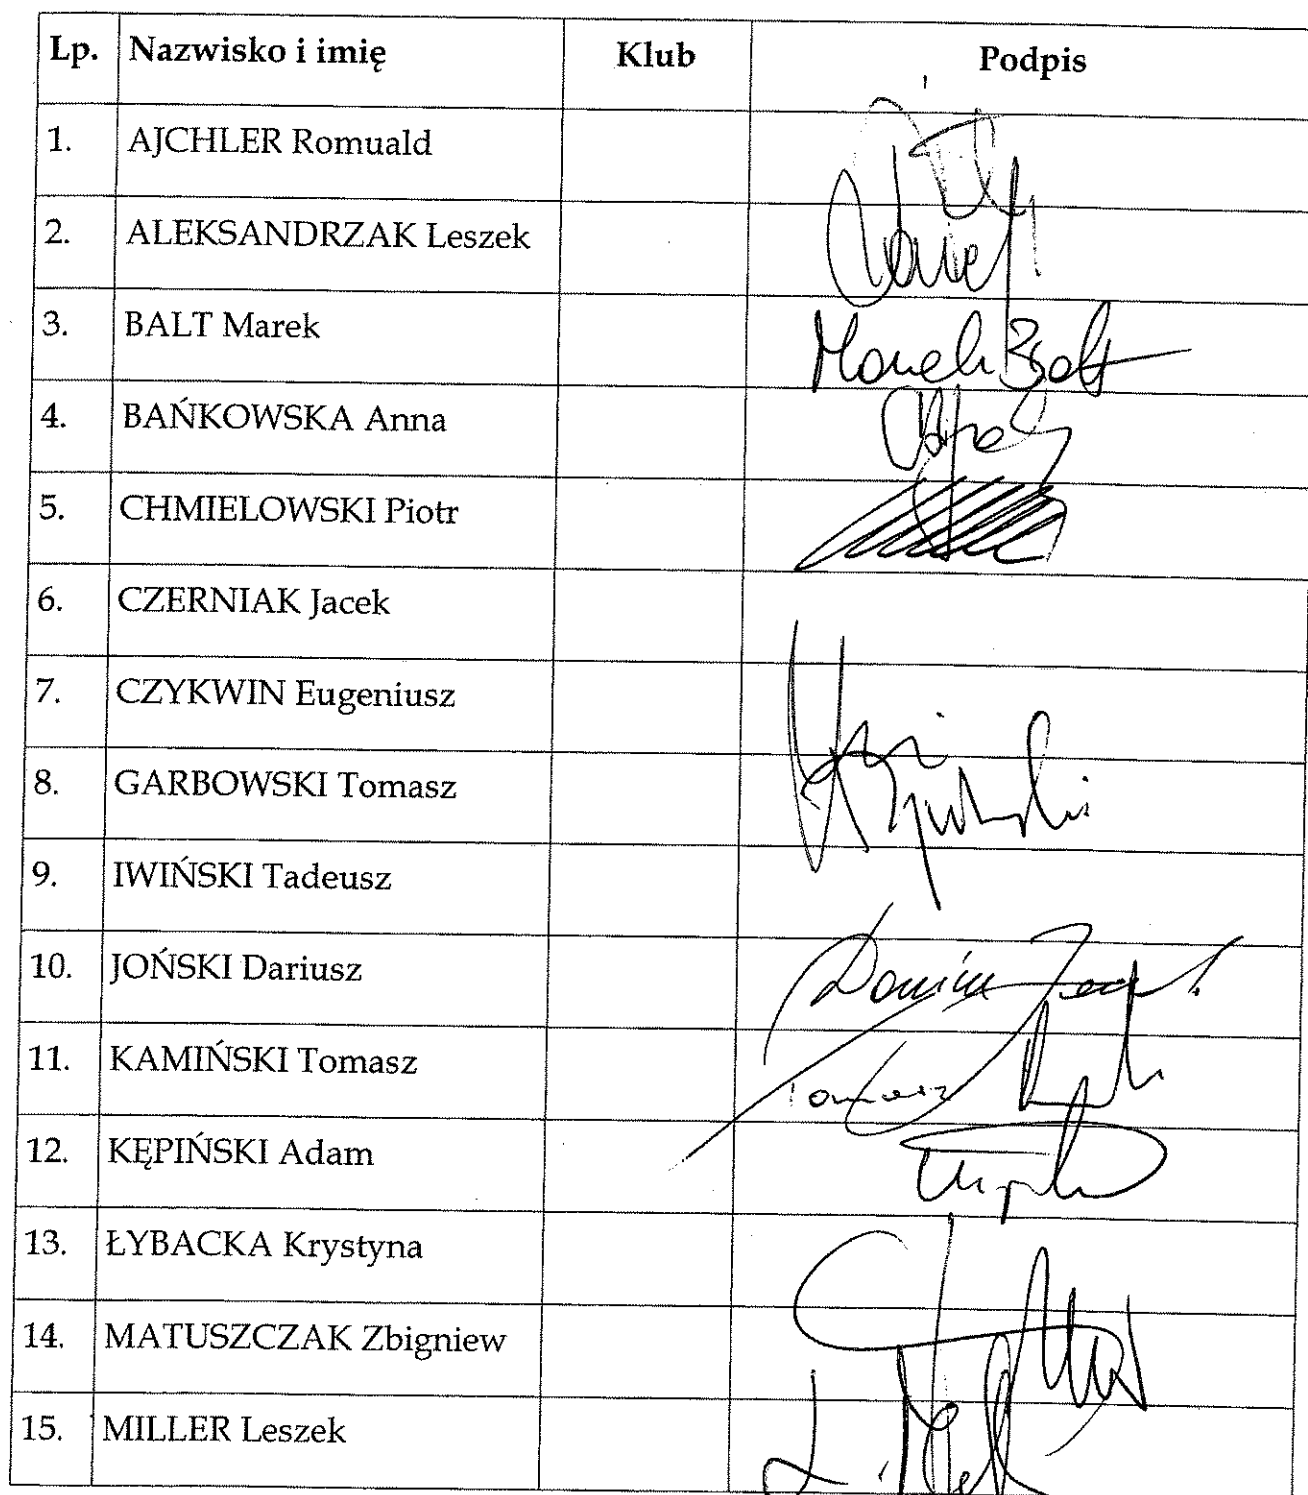 Lp. Nazwisko i imię Klub Podpis
1. AJCHLER Romuald
2. ALEKSANDRZAK Leszek
3. BALT Marek Marek Balt
4. BAŃKOWSKA Anna
5. CHMIELOWSKI Piotr
6. CZERNIAK Jacek
7. CZYKWIN Eugeniusz
8. GARBOWSKI Tomasz
9. IWIŃSKI Tadeusz
10. JOŃSKI Dariusz
11. KAMIŃSKI Tomasz Tomasz
12. KĘPIŃSKI Adam
13. ŁYBACKA Krystyna
14. MATUSZCZAK Zbigniew
15. MILLER Leszek